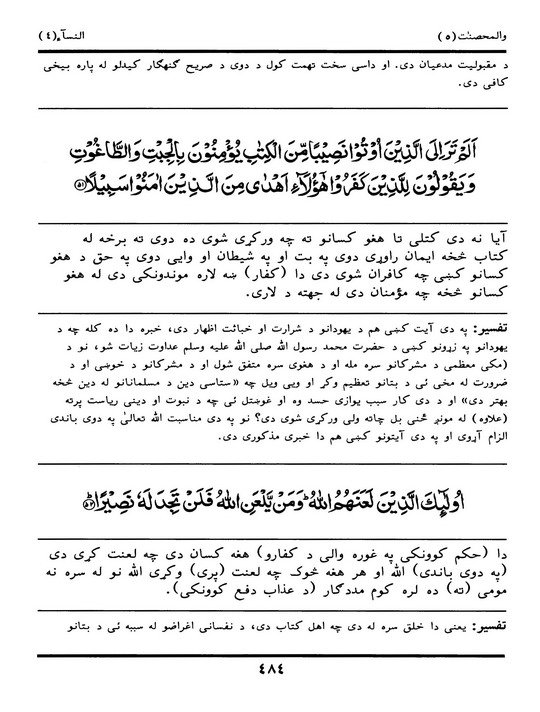 والمحصنٰت (۵)
النسآء (٤)
د مقبولیت مدعیان دی. او داسی سخت تهمت کول د دوی د صریح گنهگار کیدلو له پاره بیخی
کافی دی.
اَلَمْ تَرَ اِلَى الَّذِيْنَ اُوْتُوْا نَصِيْبًا مِّنَ الْكِتٰبِ يُؤْمِنُوْنَ بِالْجِبْتِ وَالطَّاغُوْتِ
وَيَقُوْلُوْنَ لِلَّذِيْنَ كَفَرُوْا هٰٓؤُلَآءِ اَهْدٰى مِنَ الَّذِيْنَ اٰمَنُوْا سَبِيْلًا ۵۱
آیا نه دی کتلی تا هغو کسانو ته چه ورکړی شوی ده دوی ته برخه له
کتاب څخه ایمان راوړی دوی په بت او په شیطان او وایی دوی په حق د هغو
کسانو کښی چه کافران شوی دی دا (کفار) ښه لاره موندونکی دی له هغو
کسانو څخه چه مؤمنان دی له جهته د لاری.
تفسیر: په دی آیت کښی هم د یهودانو د شرارت او خباثت اظهار دی، خبره دا ده کله چه د
یهودانو په زړونو کښی د حضرت محمد رسول الله صلی الله علیه وسلم عداوت زیات شو، نو د
(مکی معظمی د مشرکانو سره مله او د هغوی سره متفق شول او د مشرکانو د خوښی او د
ضرورت له مخی ئی د بتانو تعظیم وکړ او ویی ویل چه «ستاسی دین د مسلمانانو له دین څخه
بهتر دی» او د دی کار سبب یوازی حسد وه او غوښتل ئی چه د نبوت او دینی ریاست پرته
(علاوه) له مونږ څنی بل چاته ولی ورکړی شوی دی؟ نو په دی مناسبت الله تعالیٰ په دوی باندی
الزام آړوی او په دی آیتونو کښی هم دا خبری مذکوری دی.
اُولٰٓئِكَ الَّذِيْنَ لَعَنَهُمُ اللّٰهُ ۚ وَمَنْ يَّلْعَنِ اللّٰهُ فَلَنْ تَجِدَ لَهٗ نَصِيْرًا ۵۲
دا (حکم کوونکی په غوره والی د کفارو) هغه کسان دی چه لعنت کړی دی
(په دوی باندی) الله او هر هغه څوک چه لعنت (پری) وکړی الله نو له سره نه
مومی (ته) ده لره کوم مددگار (د عذاب دفع کوونکی).
تفسیر: یعنی دا خلق سره له دی چه اهل کتاب دی، د نفسانی اغراضو له سببه ئی د بتانو
٤٨٤